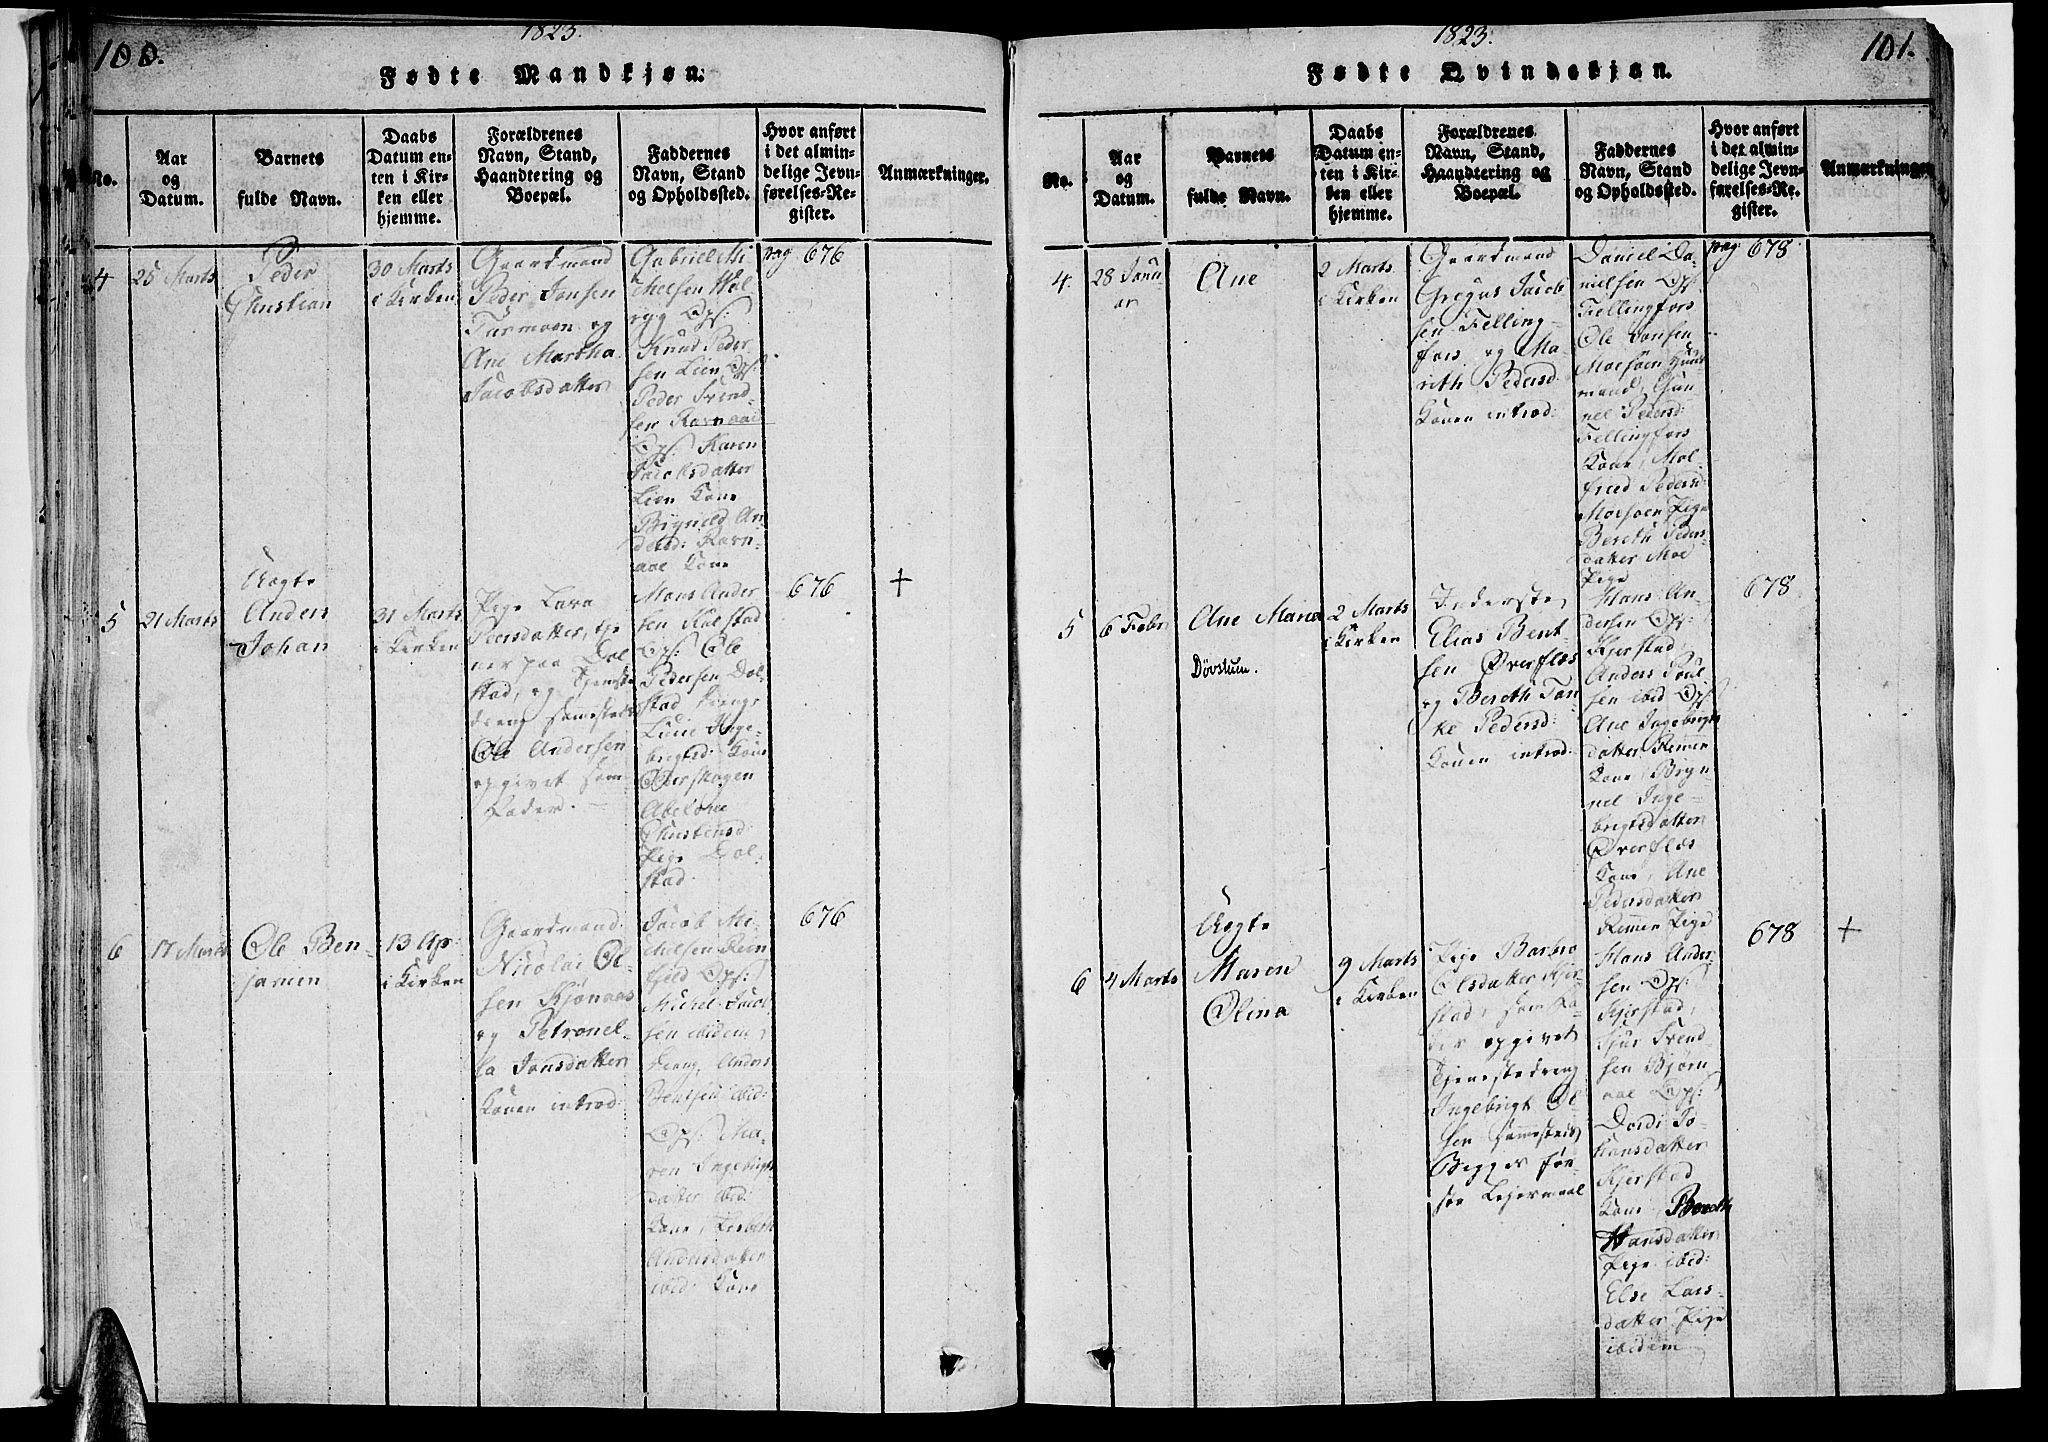 100.
1823.
Fødte Mandkjøn.
No.
Aar
og
Datum.
Barnets
fulde Navn.
Daabs
Datum en-
ten i Kir-
ken eller
hjemme.
Forældrenes
Navn, Stand,
Haandtering og
Boepæl.
Faddernes
Navn, Stand
og Opholdssted.
Hvor anført
i det almin-
delige Jevn-
førelses-Re-
gister.
Anmærkninger.
4
25 Marts
Peder
Christian
30 Marts
i Kirken
Gaardmand
Peder Jonsen
Turmoen og
Ane Martha
Jacobsdatter
Gabriel Mi
chelsen
Ops:
Knud Peder
sen Lien Ops:
Peder Svend-
sen Ravnaae
Ops: Karen
Jacobsdatter
Lien Kone
Brynild An
dersd: Ravn-
aae Kone
pag 676
5
21 Marts
Uægte
Anders
Johan
31 Marts
i Kirken
Pige Lava
Peersdatter, tje
ner paa Dol
stad, og Tjeneste
dreng sammesteds
Ole Andersen
opgivet som
Fader.
Mons Ander
sen Kulstad
Ops: Ole
Pedersen Dol-
stad Dreng
Lucie Inge-
brigtsd: Kone
Olderskogen
Abelone
Christensd:
Pige Dol-
stad
676
+
6
17 Marts
Ole Ben-
jamin
13 Ap:
i Kirken
Gaardmand
Nicolai Ol-
sen Kjønaas
og Petronel-
la Jonsdatter
Konen introd:
Jacob Mi-
chelsen Rein
fjeld Ops:
Michel Jacob
sen ibidem
dreng, Anders
Bentsen ibid:
Ops: Ma-
ren Ingebrigts
datter ibid:
Kone,
Andersdatter
ibid: Kone
676
1823.
101.
Fødte Qvindekjøn.
No.
Aar
og
Datum.
Barnets
fulde Navn.
Daabs
Datum en-
ten i Kir-
ken eller
hjemme.
Forældrenes
Navn, Stand,
Haandtering og
Boepæl.
Faddernes
Navn, Stand
og Opholdssted.
Hvor anført
i det almin-
delige Jevn-
førelses-Re-
gister.
Anmærkninger
4.
28 Janu
ar
Ane
2 Marts
i Kirken
Gaardmand
Gregus Jacob
sen Felling-
fors og Ma-
rith Pedersd.
Konen introd:
Daniel Da-
nielsen Ops:
Fellingfors
Ole Jonsen
Mosøen Huus
mand, Gun-
nel Pedersd:
Fellingfors
Kone, Mal-
fred Pedersd:
Mosøen Pige
Bereth Peders-
datter Moe
Pige
pag 678
5
6 Febr
Ane Maria
Døvstum.
2 Marts
i Kirken
Inderste
Elias Bent-
sen Øverflæs
og Bereth Tan-
ke Pedersd:
Konen introd:
Hans An-
dersen Ops:
Kjerstad
Anders Poul
sen ibid Ops:
Ane Ingebrigts
datter Remen
Kone, Bryn-
nel Inge-
brigtsdatter
Øverflæs
Kone, Ane
Pedersdatter
Remen Pige
678
6
4 Marts
Uægte
Maren
Olina
9 Marts
i Kirken
Pige Barbro
Olsdatter Kjer-
stad, som Fa-
der opgivet
Tjenestedreng
Ingebrigt Ol-
sen sammesteds
Begges før-
ste Lejermaal
Hans Ander-
sen Ops:
Kjerstad,
Sjur Svend-
sen Bjørn
aae Ops:
Dordi Jo-
hansdatter
Kjerstad
Kone, Bereth
Hansdatter
Pige ibid:
Else Lars-
datter Pige
ibidem
678
+